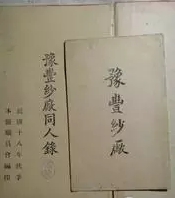 豫豐紗廠同人錄
民國十八年秋季
本廠職員會編印
豫豐紗廠